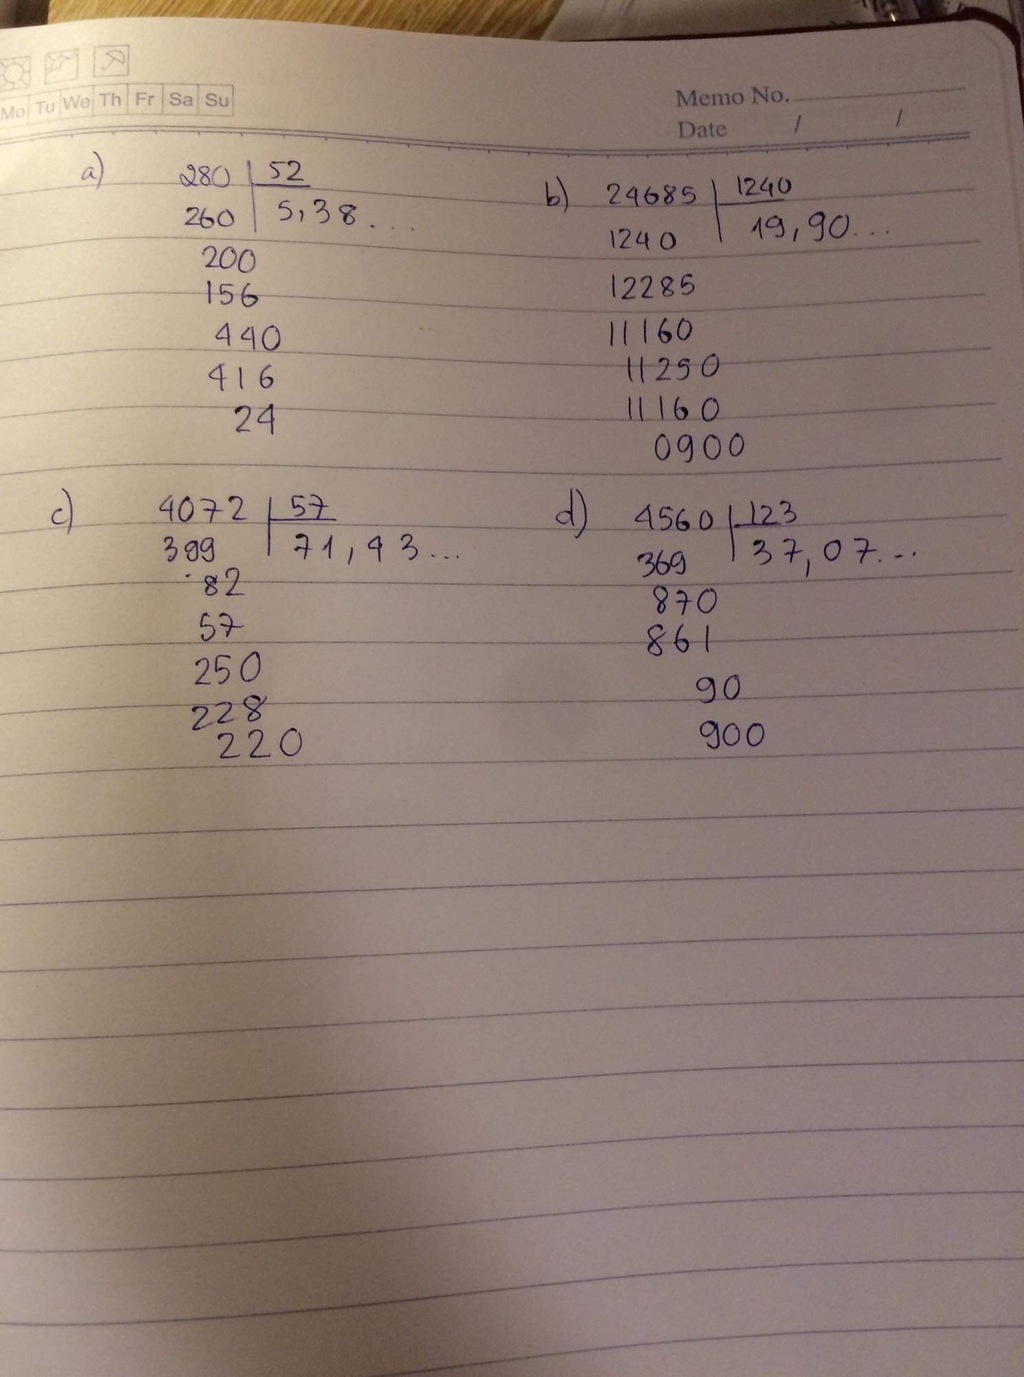 Mo Tu We Th Fr Sa Su
Memo No.
Date / /
a)
280 52
260 5,38...
200
156
440
416
24
b)
24685 1240
1240 19,90...
12285
11160
11250
11160
0900
c)
4072 57
399 71,43...
82
57
250
228
220
d)
4560 123
369 37,07...
870
861
90
900